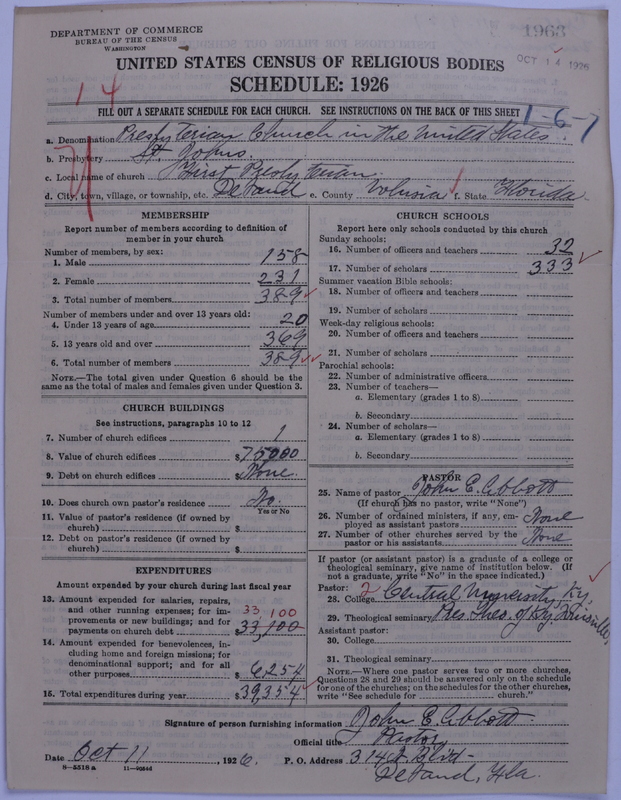 1963
DEPARTMENT OF COMMERCE
BUREAU OF THE CENSUS
WASHINGTON
OCT 14 1926
UNITED STATES CENSUS OF RELIGIOUS BODIES
SCHEDULE: 1926
14
FILL OUT A SEPARATE SCHEDULE FOR EACH CHURCH. SEE INSTRUCTIONS ON THE BACK OF THIS SHEET
1-6-7
a. Denomination Presbyterian Church in the United States.
b. Presbytery St. Johns.
c. Local name of church First Presbyterian.
d. City, town, village, or township, etc. DeLand e. County Volusia f. State Florida
MEMBERSHIP
Report number of members according to definition of
member in your church
Number of members, by sex:
1. Male 158
2. Female 231
3. Total number of members 389
Number of members under and over 13 years old:
4. Under 13 years of age 20
5. 13 years old and over 369
6. Total number of members 389
NOTE.—The total given under Question 6 should be the
same as the total of males and females given under Question 3.
CHURCH BUILDINGS
See instructions, paragraphs 10 to 12
7. Number of church edifices 1
8. Value of church edifices $75000
9. Debt on church edifices $None.
10. Does church own pastor's residence No.
Yes or No
11. Value of pastor's residence (if owned by
church) $
12. Debt on pastor's residence (if owned by
church) $
EXPENDITURES
Amount expended by your church during last fiscal year
13. Amount expended for salaries, repairs,
and other running expenses; for im-
provements or new buildings; and for
payments on church debt $33,100
33 100
14. Amount expended for benevolences, in-
cluding home and foreign missions; for
denominational support; and for all
other purposes $6,254
15. Total expenditures during year $39,354
CHURCH SCHOOLS
Report here only schools conducted by this church
Sunday schools:
16. Number of officers and teachers 32
17. Number of scholars 333
Summer vacation Bible schools:
18. Number of officers and teachers
19. Number of scholars
Week-day religious schools:
20. Number of officers and teachers
21. Number of scholars
Parochial schools:
22. Number of administrative officers
23. Number of teachers—
a. Elementary (grades 1 to 8)
b. Secondary
24. Number of scholars—
a. Elementary (grades 1 to 8)
b. Secondary
PASTOR
25. Name of pastor John E. Abbott
(If church has no pastor, write "None")
26. Number of ordained ministers, if any, em-
ployed as assistant pastors None
27. Number of other churches served by the
pastor or his assistants None
If pastor (or assistant pastor) is a graduate of a college or
theological seminary, give name of institution below. (If
not a graduate, write "No" in the space indicated.)
Pastor: 2
28. College Central University, Ky.
29. Theological seminary Pres. Theo. of Ky. Louisville,
Assistant pastor:
30. College
31. Theological seminary
NOTE.—Where one pastor serves two or more churches,
Questions 28 and 29 should be answered only on the schedule
for one of the churches; on the schedules for the other churches,
write "See schedule for church."
Signature of person furnishing information John E. Abbott
Official title Pastor
Date Oct 11, 1926. P. O. Address Blvd-
DeLand, Fla.
8—5518 a